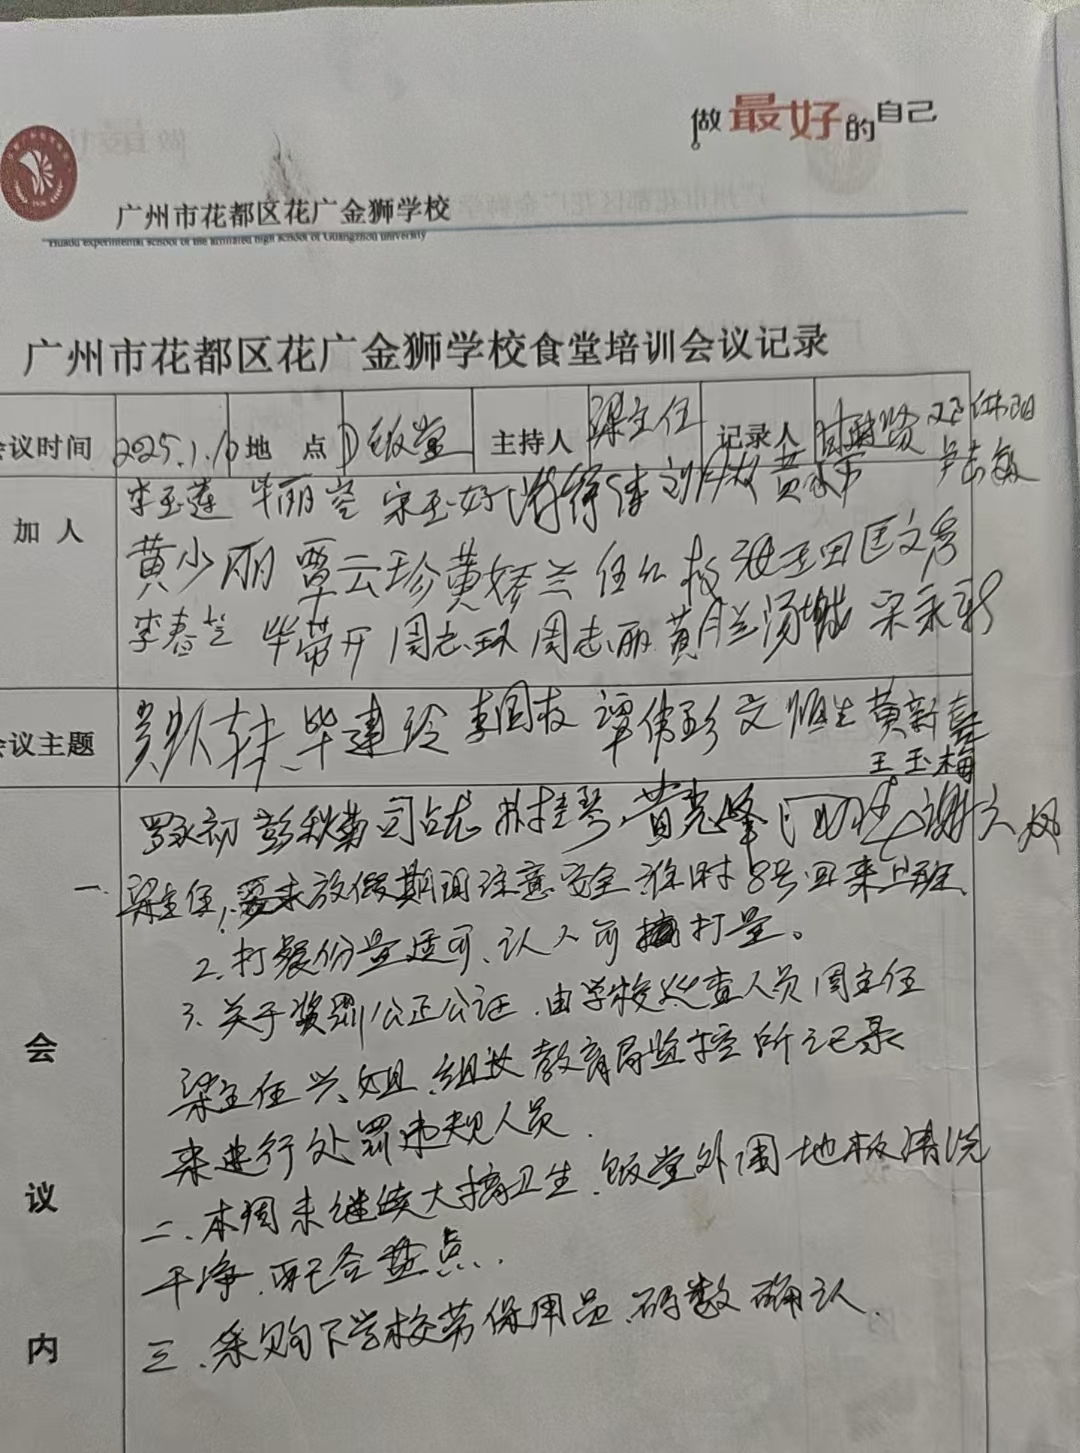 做最好的自己
广州市花都区花广金狮学校
Huadu experimental school of the affiliated high school of Guangzhou university
广州市花都区花广金狮学校食堂培训会议记录
会议时间 2025.1.10 地点 饭堂 主持人 梁主任 记录人
加人 李玉莲 毕丽 宋玉好 黄
黄少丽 覃云珍 黄娇兰 任 张玉田 匡文秀
李春兰 毕带开 周志环 周志丽 黄月兰 汤 宋永彩
会议主题 毕建玲 李国权 谭伟彩 文恒生 黄新喜
王玉梅
罗永初 彭秋菊 司占龙 林桂琴 黄志峰 谢六凤
一 梁主任，要求放假期间注意安全 准时8号回来上班、
2、打餐份量适可、认人可打量。
会 3、关于奖罚公正公证、由学校巡查人员周主任
梁主任 兴姐、组长 教育局监控所记录
来进行处罚违规人员.
议 二、本周末继续大搞卫生、饭堂外围地板清洗
干净、配合盘点、
内 三、采购下学校劳保用品、码数确认、